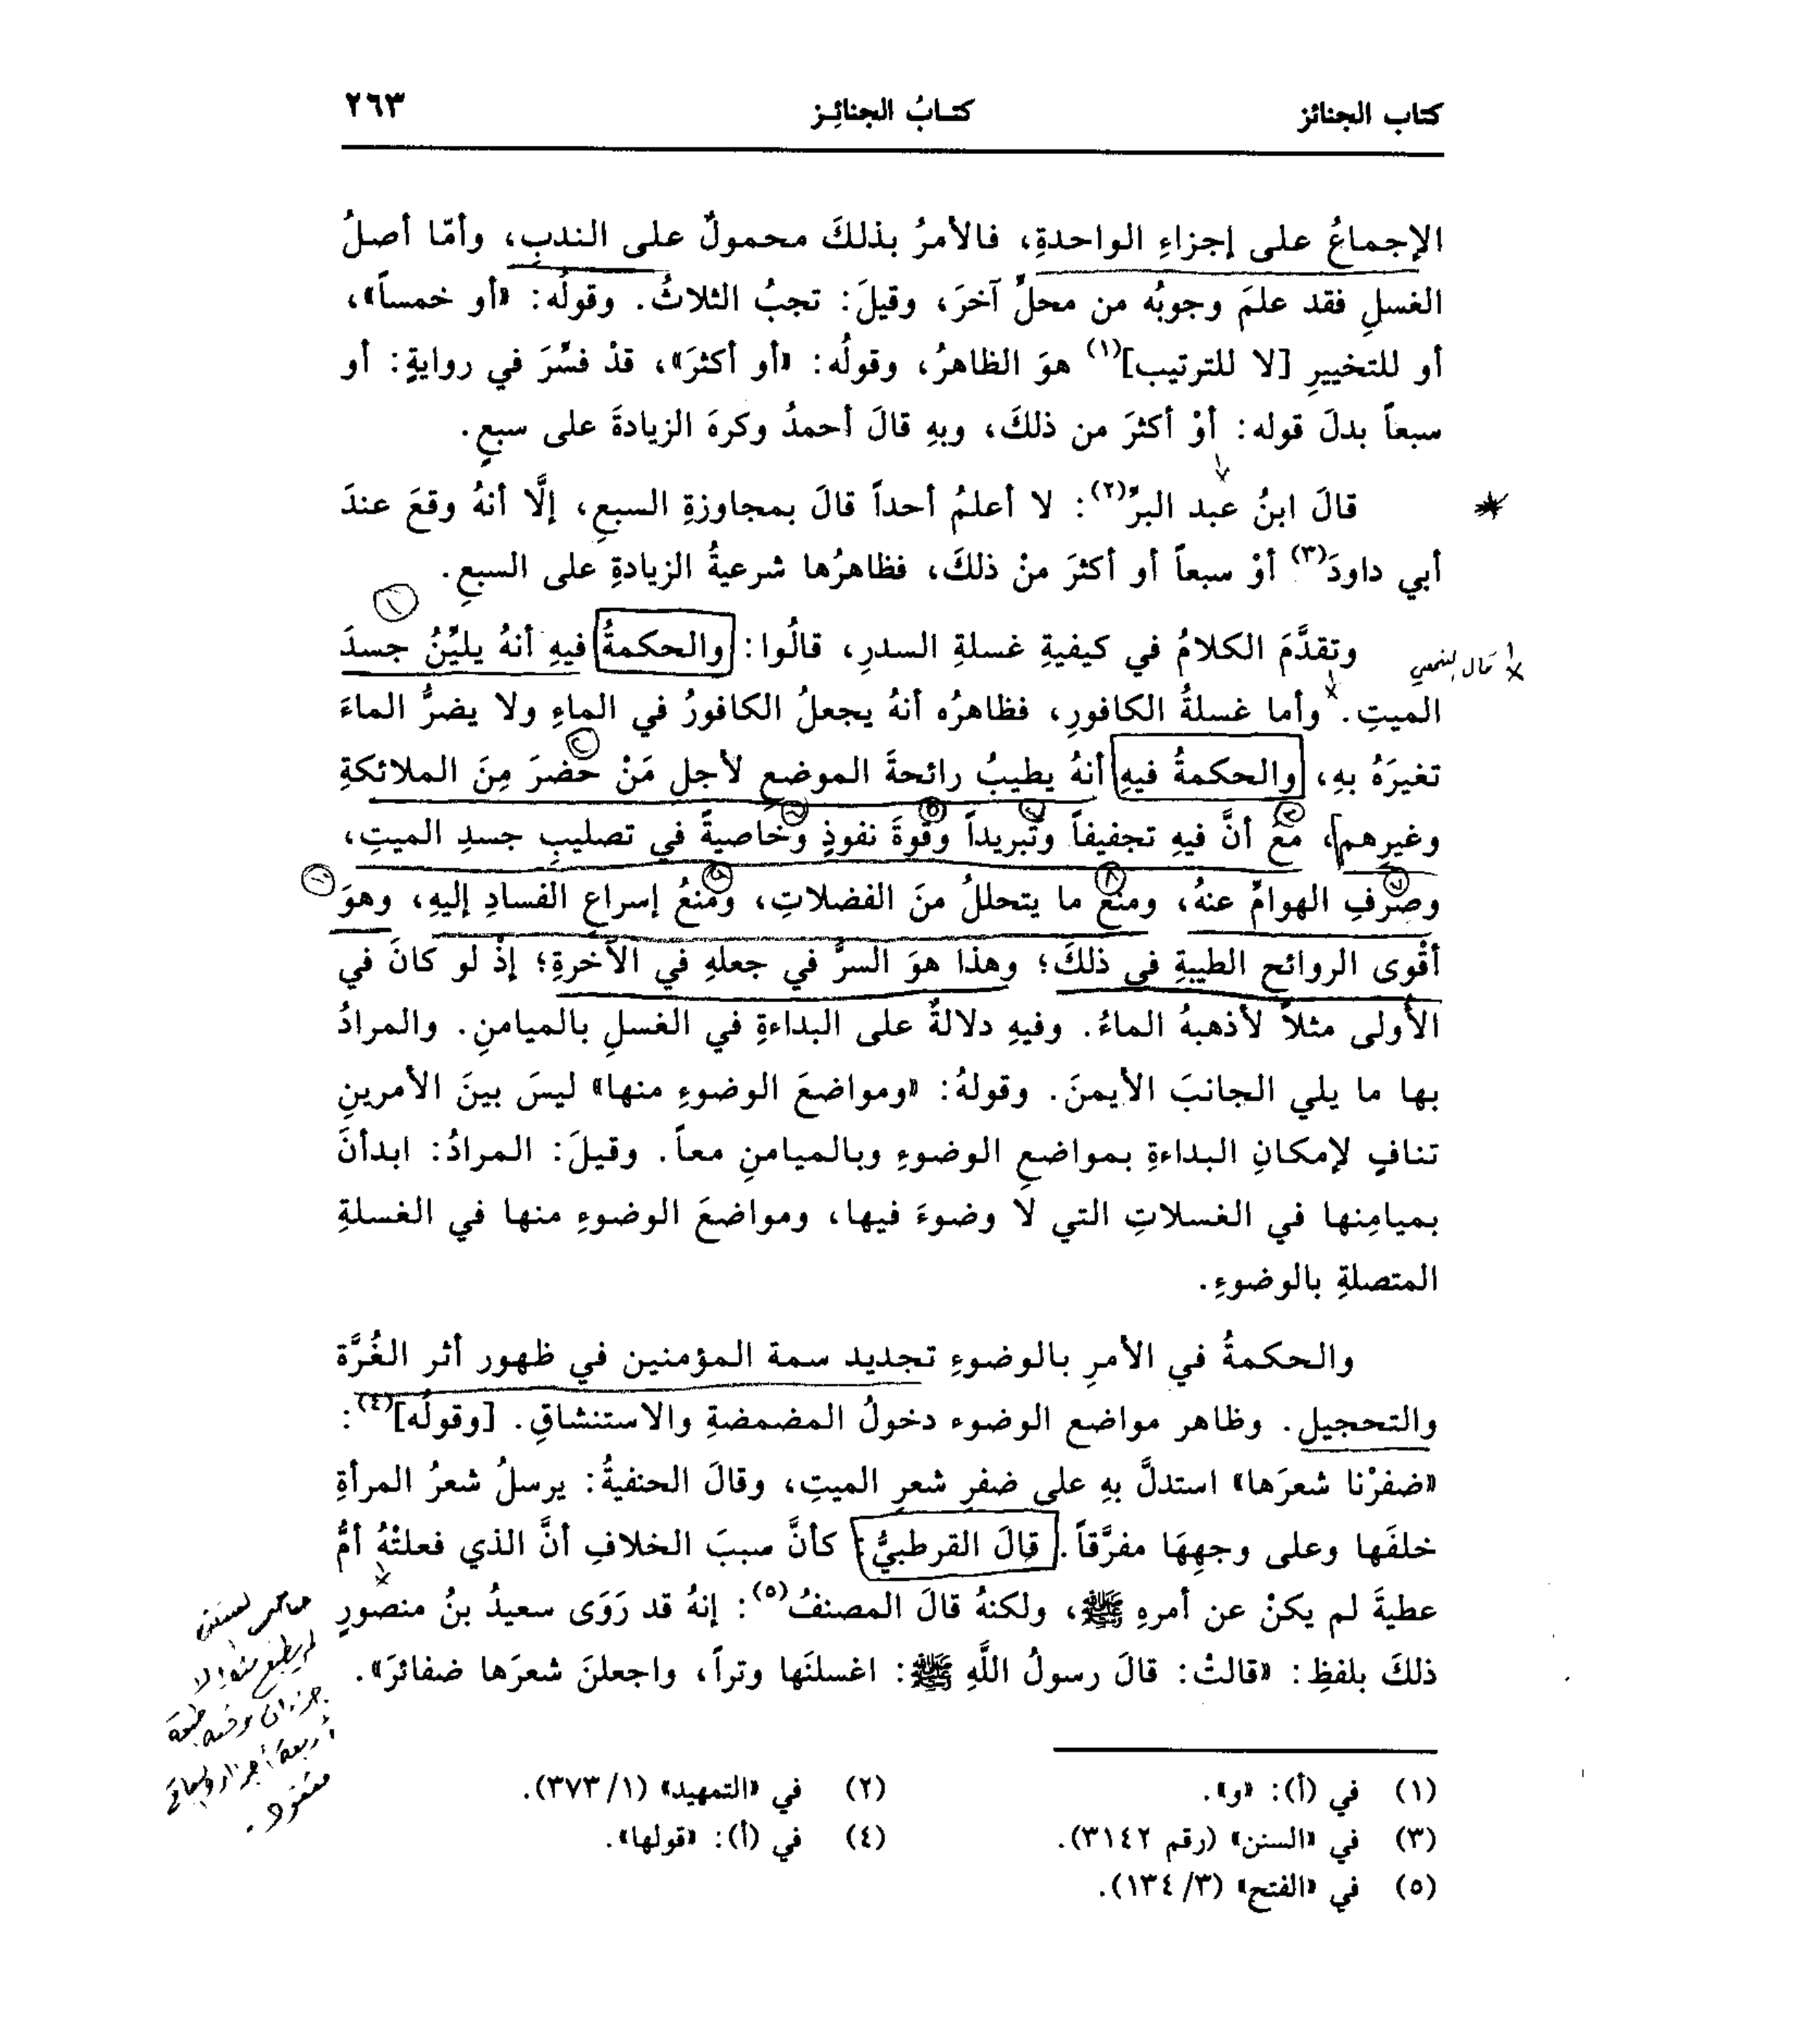 كتاب الجنائز كتـابُ الجنائِـز ٢٦٣
الإجماعُ على إجزاءِ الواحدةِ، فالأمرُ بذلكَ محمولٌ على الندبِ، وأمّا أصلُ
الغسلِ فقد علمَ وجوبُه من محلٍّ آخرَ، وقيلَ: تجبُ الثلاثُ. وقولُه: «أو خمساً»،
أو للتخييرِ [لا للترتيب](١) هوَ الظاهرُ، وقولُه: «أو أكثرَ»، قدْ فسِّرَ في روايةٍ: أو
سبعاً بدلَ قوله: أوْ أكثرَ من ذلكَ، وبهِ قالَ أحمدُ وكرهَ الزيادةَ على سبعٍ.
قالَ ابنُ عبد البرِّ(٢): لا أعلمُ أحداً قالَ بمجاوزةِ السبعِ، إلَّا أنهُ وقعَ عندَ
أبي داودَ(٣) أوْ سبعاً أو أكثرَ منْ ذلكَ، فظاهرُها شرعيةُ الزيادةِ على السبعِ.
وتقدَّمَ الكلامُ في كيفيةِ غسلةِ السدرِ، قالُوا: والحكمةُ فيهِ أنهُ يليِّنُ جسدَ
الميتِ. وأما غسلةُ الكافورِ، فظاهرُه أنهُ يجعلُ الكافورُ في الماءِ ولا يضرُّ الماءَ
تغيرَهُ بهِ، والحكمةُ فيهِ أنهُ يطيبُ رائحةَ الموضعِ لأجلِ مَنْ حضرَ مِنَ الملائكةِ
وغيرِهم، معَ أنَّ فيهِ تجفيفاً وتبريداً وقوةَ نفوذٍ وخاصيةً في تصليبِ جسدِ الميتِ،
وصرفِ الهوامِّ عنهُ، ومنعُ ما يتحللُ منَ الفضلاتِ، ومنعُ إسراعِ الفسادِ إليهِ، وهوَ
أقْوى الروائحِ الطيبةِ في ذلكَ؛ وهذا هوَ السرُّ في جعلهِ في الآخرةِ؛ إذْ لو كانَ في
الأولى مثلاً لأذهبهُ الماءُ. وفيهِ دلالةٌ على البداءةِ في الغسلِ بالميامنِ. والمرادُ
بها ما يلي الجانبَ الأيمنَ. وقولهُ: «ومواضعَ الوضوءِ منها» ليسَ بينَ الأمرينِ
تنافٍ لإمكانِ البداءةِ بمواضعِ الوضوءِ وبالميامنِ معاً. وقيلَ: المرادُ: ابدأنَ
بميامِنها في الغسلاتِ التي لا وضوءَ فيها، ومواضعَ الوضوءِ منها في الغسلةِ
المتصلةِ بالوضوءِ.
والحكمةُ في الأمرِ بالوضوءِ تجديد سمة المؤمنين في ظهور أثر الغُرَّة
والتحجيل. وظاهر مواضع الوضوء دخولُ المضمضةِ والاستنشاقِ. [وقولُه](٤):
«ضفرْنا شعرَها» استدلَّ بهِ على ضفرِ شعرِ الميتِ، وقالَ الحنفيةُ: يرسلُ شعرُ المرأةِ
خلفَها وعلى وجهِهَا مفرَّقاً. قالَ القرطبيُّ: كأنَّ سببَ الخلافِ أنَّ الذي فعلتْهُ أمُّ
عطيةَ لم يكنْ عن أمرهِ ﷺ، ولكنهُ قالَ المصنفُ(٥): إنهُ قد رَوَى سعيدُ بنُ منصورٍ
ذلكَ بلفظِ: «قالتْ: قالَ رسولُ اللَّهِ ﷺ: اغسلنَها وتراً، واجعلنَ شعرَها ضفائرَ».
(١) في (أ): «و». (٢) في «التمهيد» (١/ ٣٧٣).
(٣) في «السنن» (رقم ٣١٤٢). (٤) في (أ): «قولها».
(٥) في «الفتح» (٣/ ١٣٤).